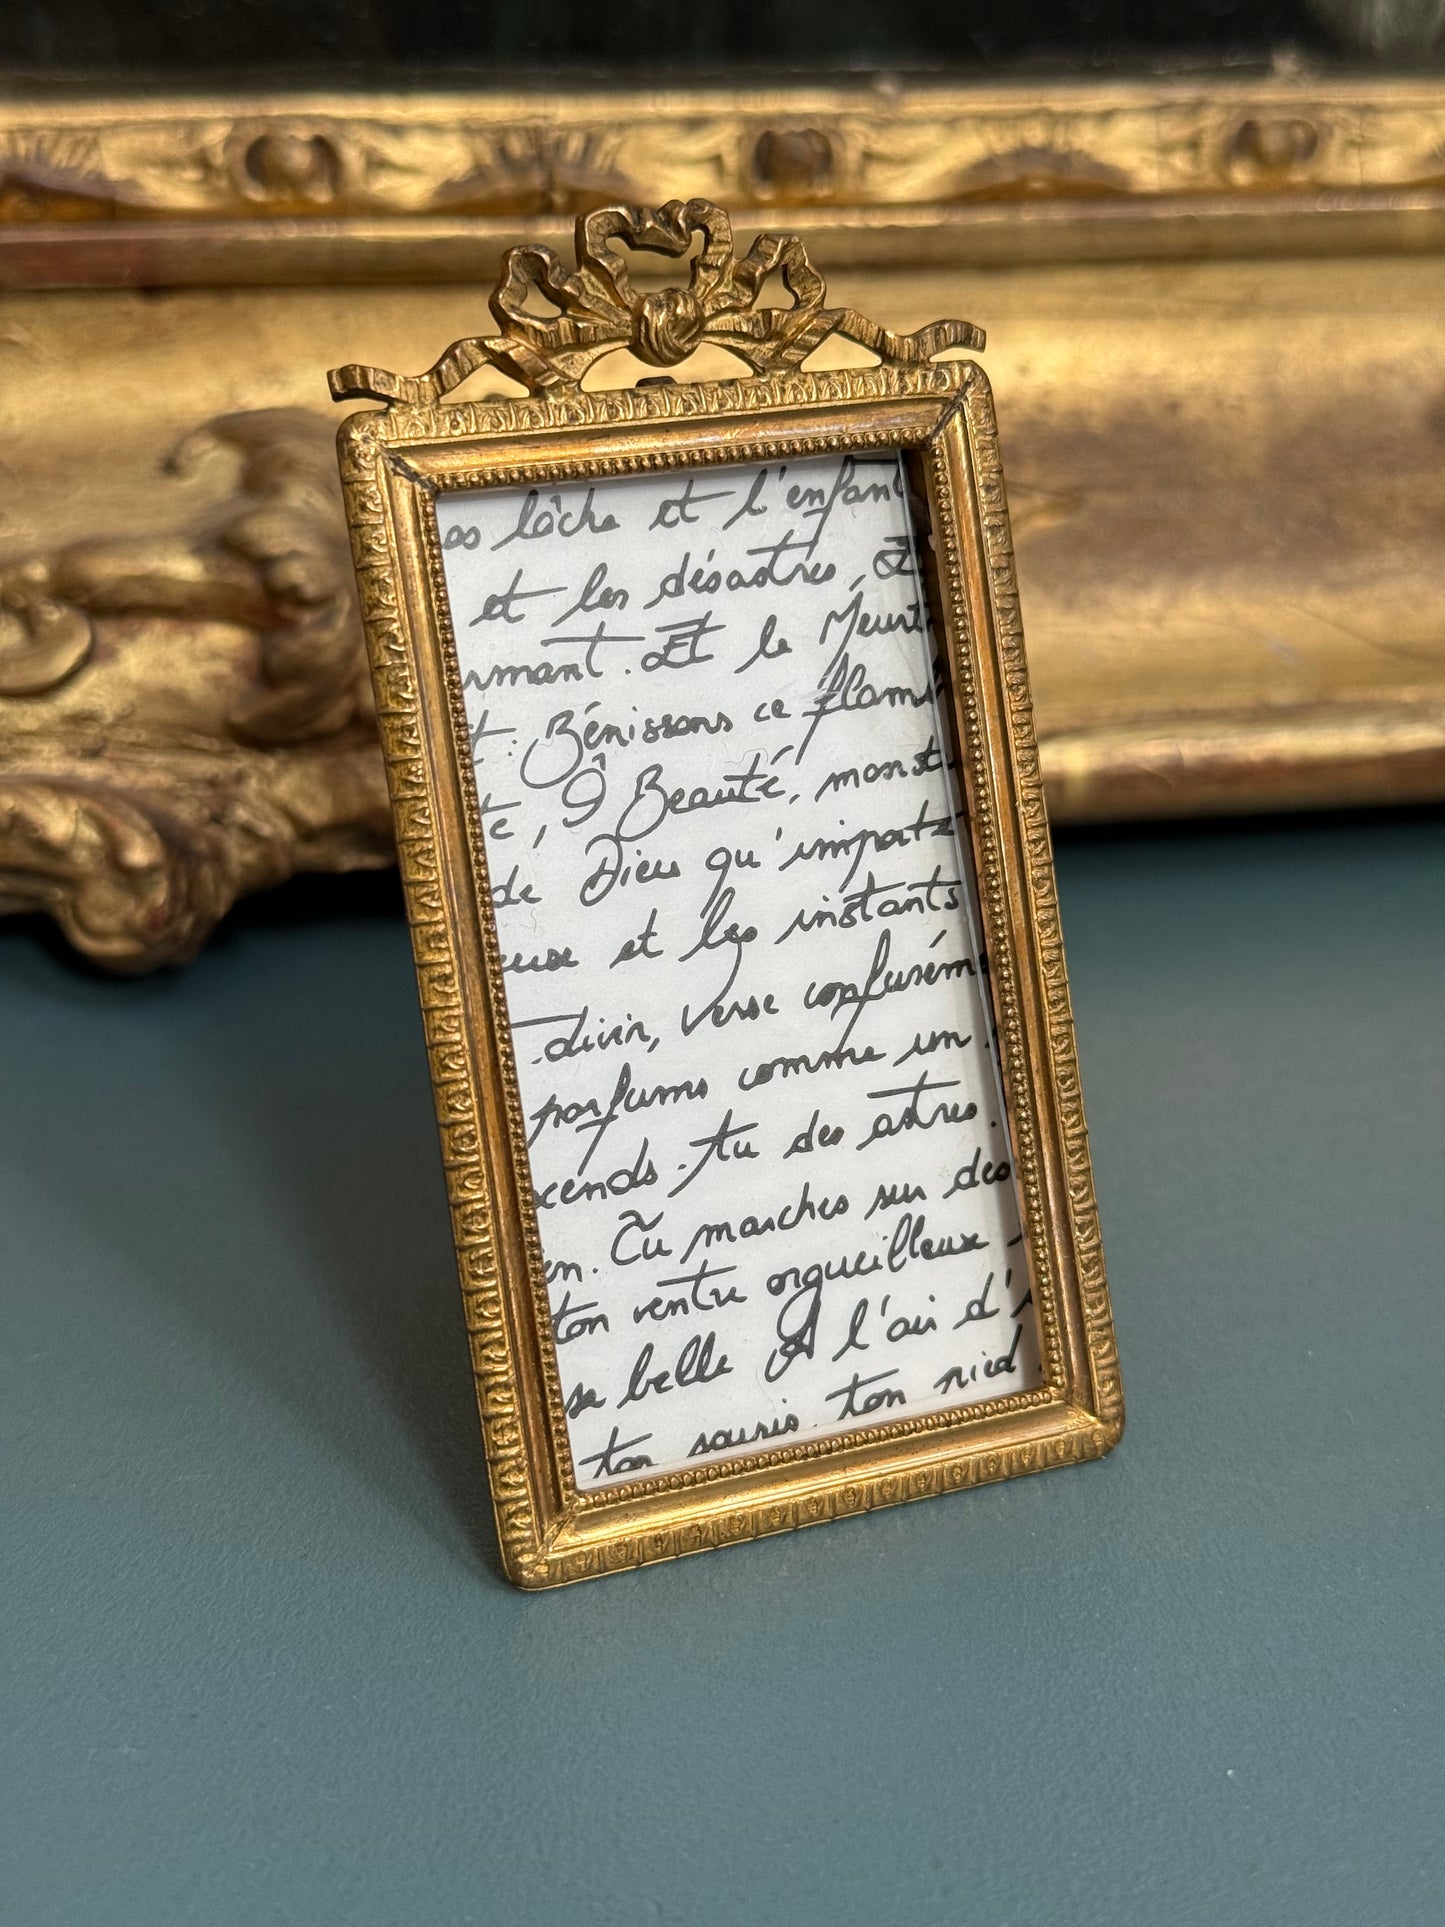 os lâche et l'enfant
et les désastres, Et
rmant. Et le Meurt
t: Bénissons ce flamb
te, Ô Beauté, monst
de Dieu qu'importe
euse et les instants
divin, verse confusém
parfums comme un
scends-tu des astres.
en. Tu marches sur des
ton ventre orgueilleuse
se belle A l'air d'
ton souris, ton pied